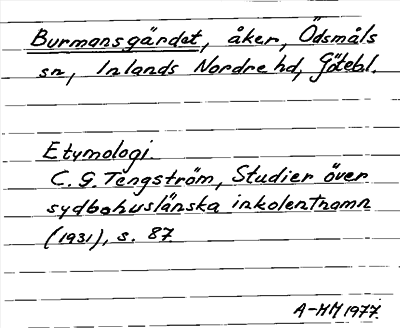 Burmansgärdet, åker, Ödsmåls
sn, Inlands Nordre hd, Götebl.
Etymologi.
C. G. Tengström, Studier över
sydbohuslänska inkolentnamn
(1931), s. 87
A-MM 1977